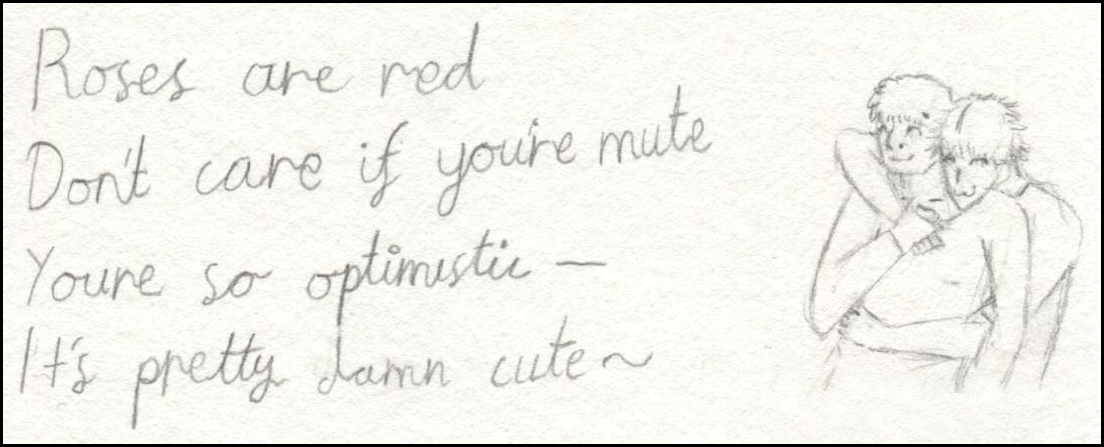 Roses are red
Don't care if you're mute
Youre so optimistic —
It's pretty damn cute~